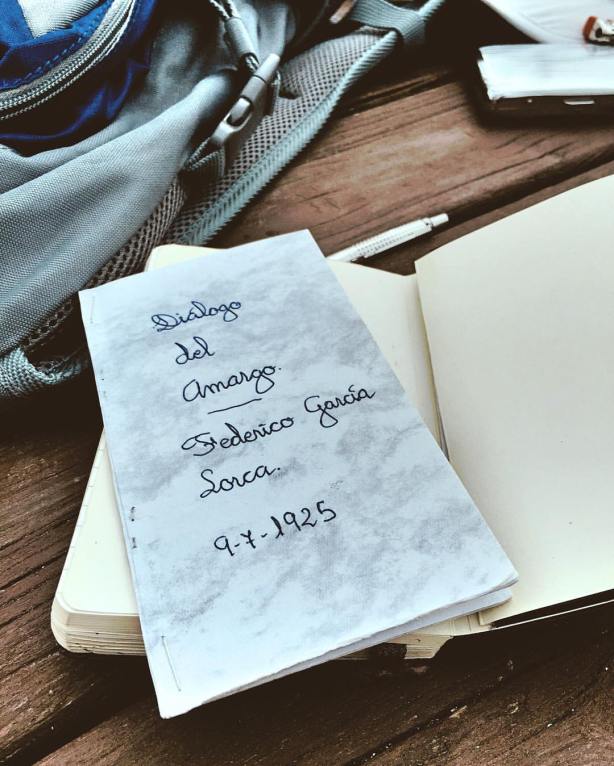 Diálogo
del
Amargo.
Federico García
Lorca.
9-7-1925